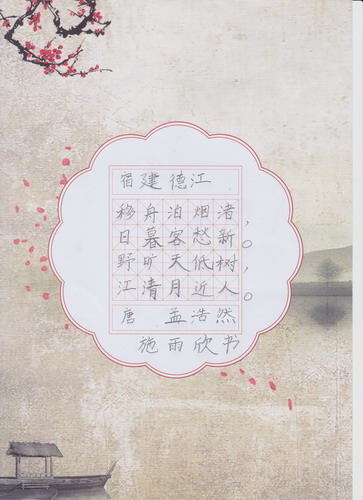 宿建德江
移舟泊烟渚，
日暮客愁新。
野旷天低树，
江清月近人。
唐 孟浩然
施雨欣书